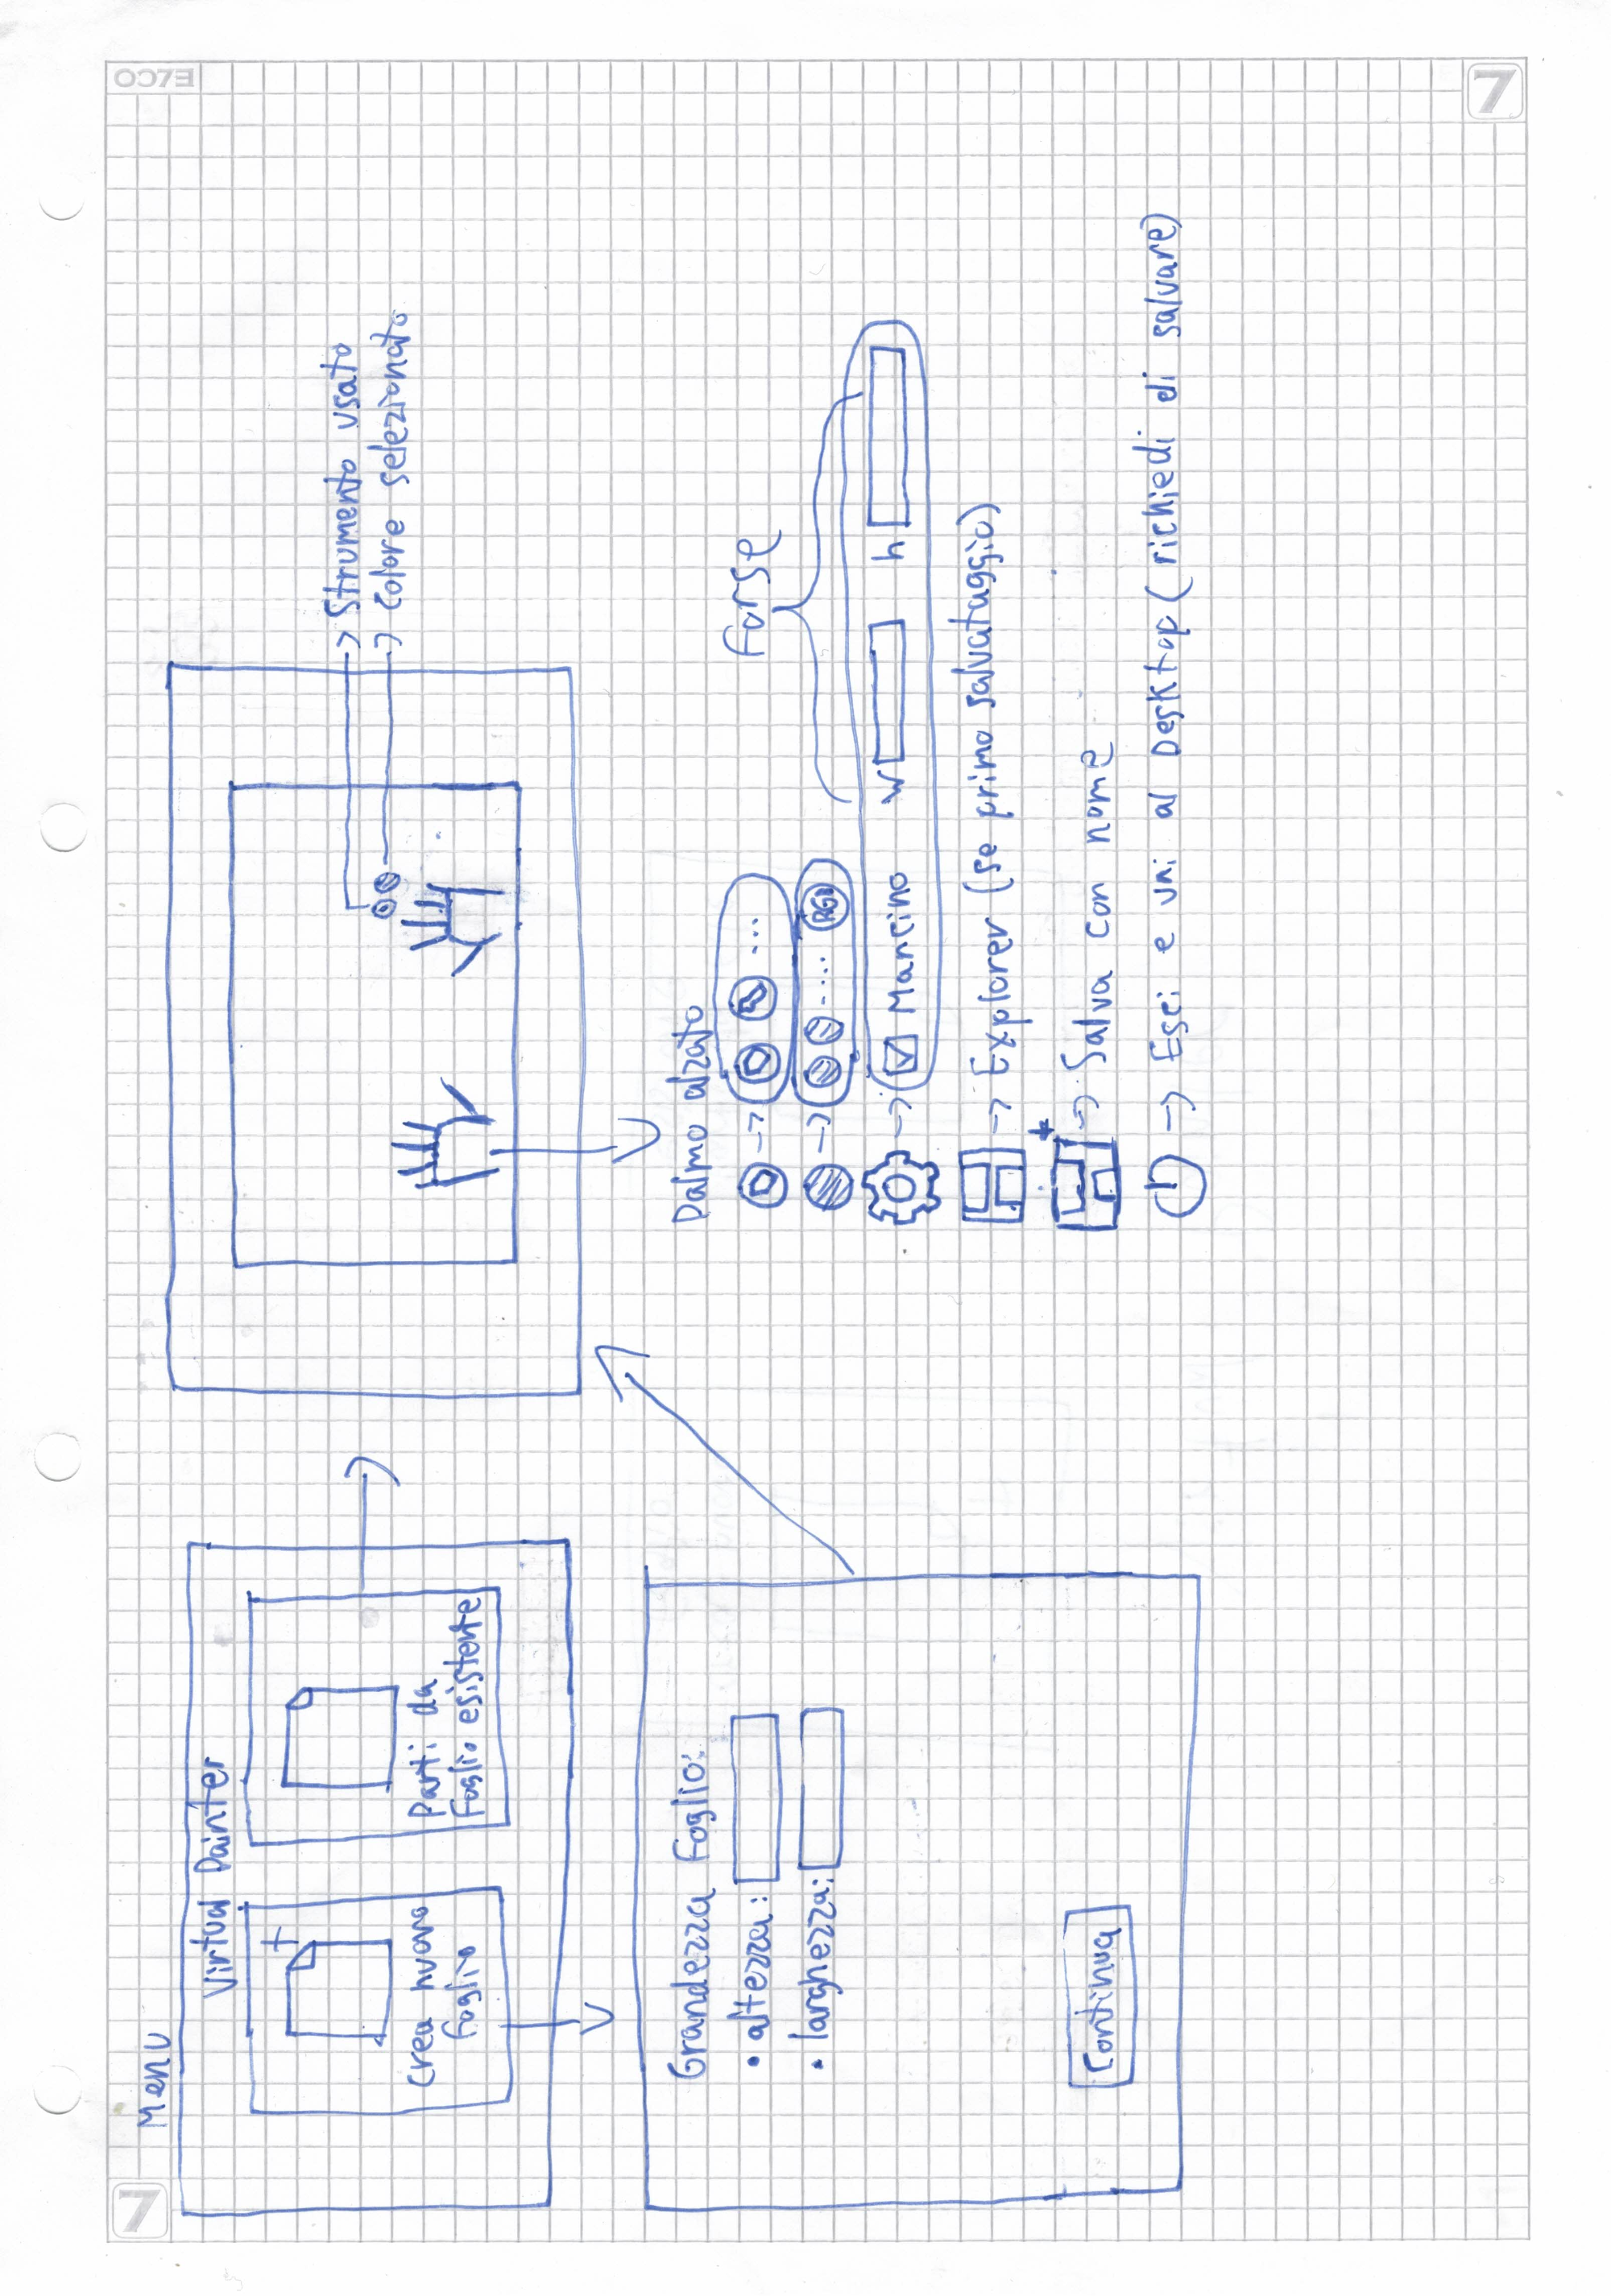 Menu
Virtual Painter
Crea nuovo
foglio
Parti da
foglio esistente
Grandezza foglio:
• altezza:
• larghezza:
Continua
Strumento usato
Colore selezionato
Palmo alzato
...
... RGB
forse
Mancino w h
Explorer (se primo salvataggio)
Salva con nome
Esci e vai al Desktop (richiedi di salvare)
ELCO
7
7